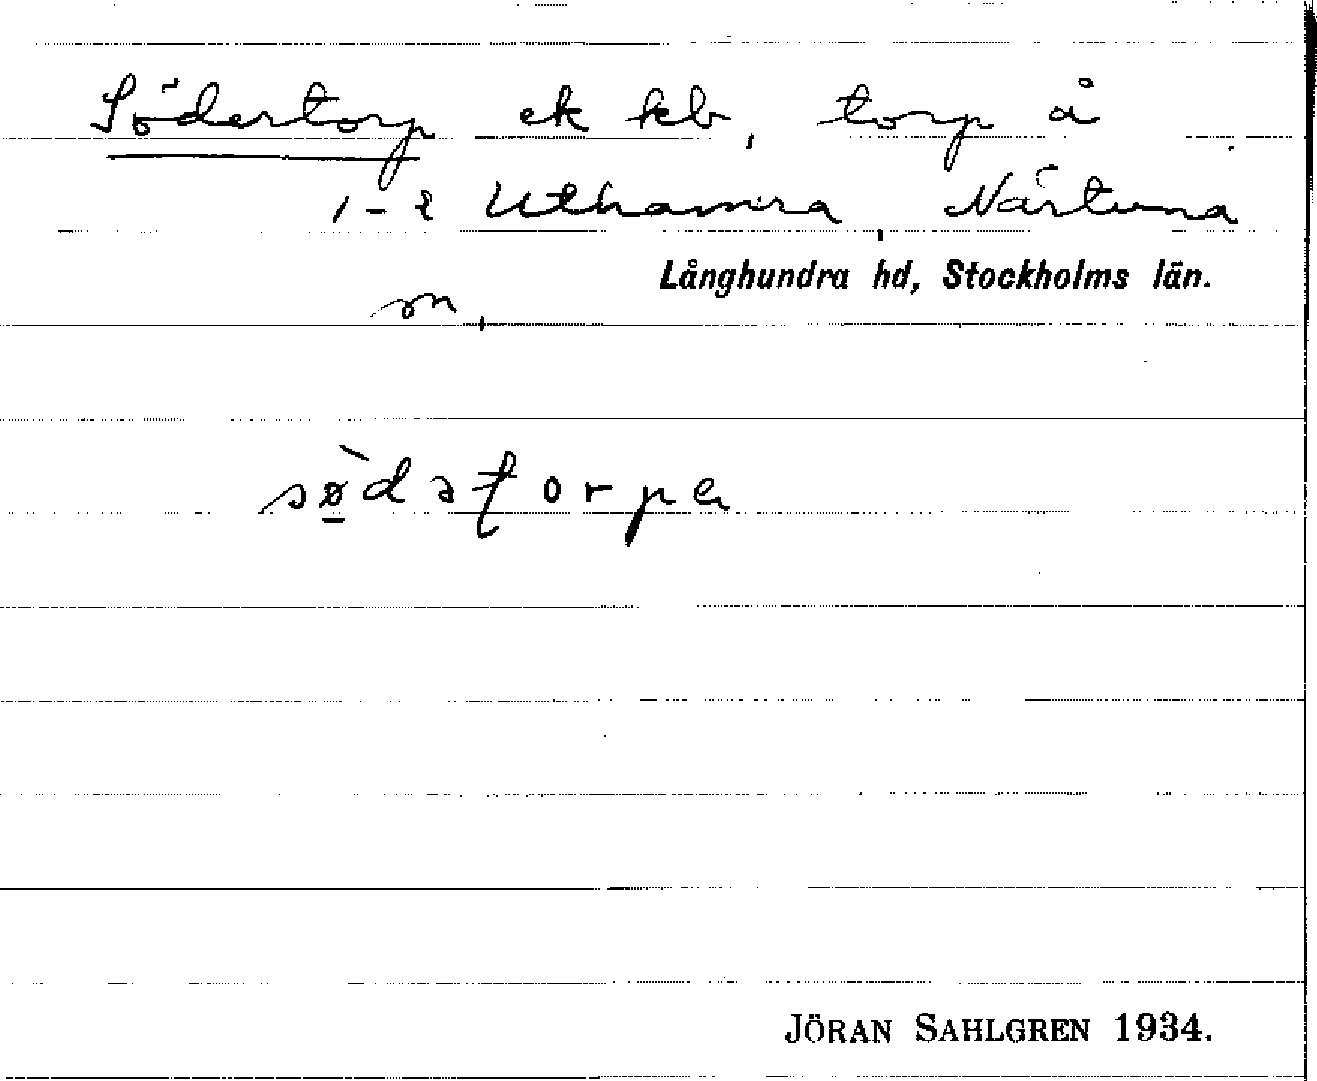 Södertorp ek kb, torp å
1-2 Uthamra, Närtuna
Långhundra hd, Stockholms län.
sn,
sø̀dətorpa
JÖRAN SAHLGREN 1934.